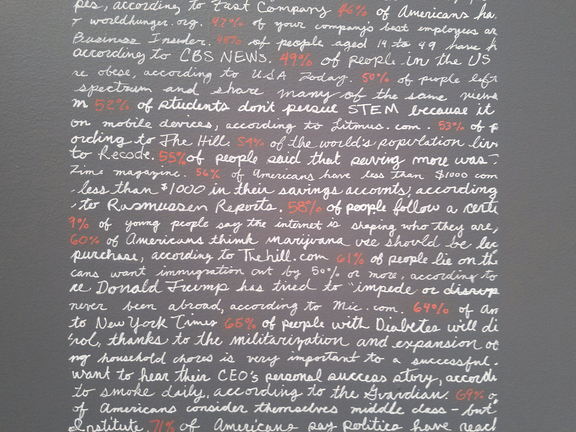 pes, according to Fast Company 46% of Americans ha
r worldhunger.org. 47% of your company's best employees ar
Business Insider. 48% of people aged 18 to 49 have h
according to CBS NEWS. 49% of people in the US
re obese, according to USA Today. 50% of people left
spectrum and share many of the same news
m 52% of students don't persue STEM because it
on mobile devices, according to Litmus.com. 53% of p
ording to The Hill. 54% of the world's population liv
to Recode. 55% of people said that saving more was
Time magazine. 56% of Americans have less than $1000 com
less than $1000 in their savings accounts, according
to Rasmussen Reports. 58% of people follow a certi
9% of young people say the internet is shaping who they are,
60% of Americans think marijuana use should be leg
purchase, according to Thehill.com 61% of people lie on th
cans want immigration cut by 50% or more, according to
re Donald Trump has tried to "impede or disrup
never been abroad, according to Mic.com. 64% of Am
to New York Times 65% of people with Diabetes will di
'rol, thanks to the militarization and expansion of
ng household chores is very important to a successful
want to hear their CEO's personal success story, accordi
to smoke daily, according to the Guardian. 69% o
of Americans consider themselves middle class - but
Institute. 71% of Americans say politics have reach